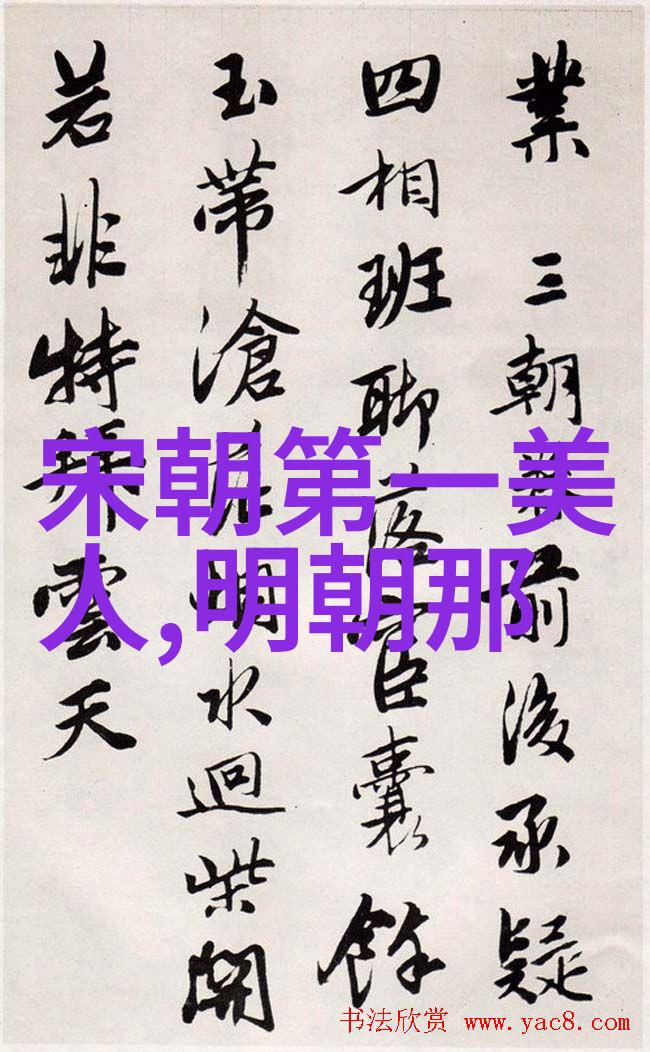 業 三朝前後承疑
四相班聊落宦囊餘
玉帶滄明水迴柴開
若非特雲天
宋朝第一美
人,明朝那
书法欣赏 www.yac8.com